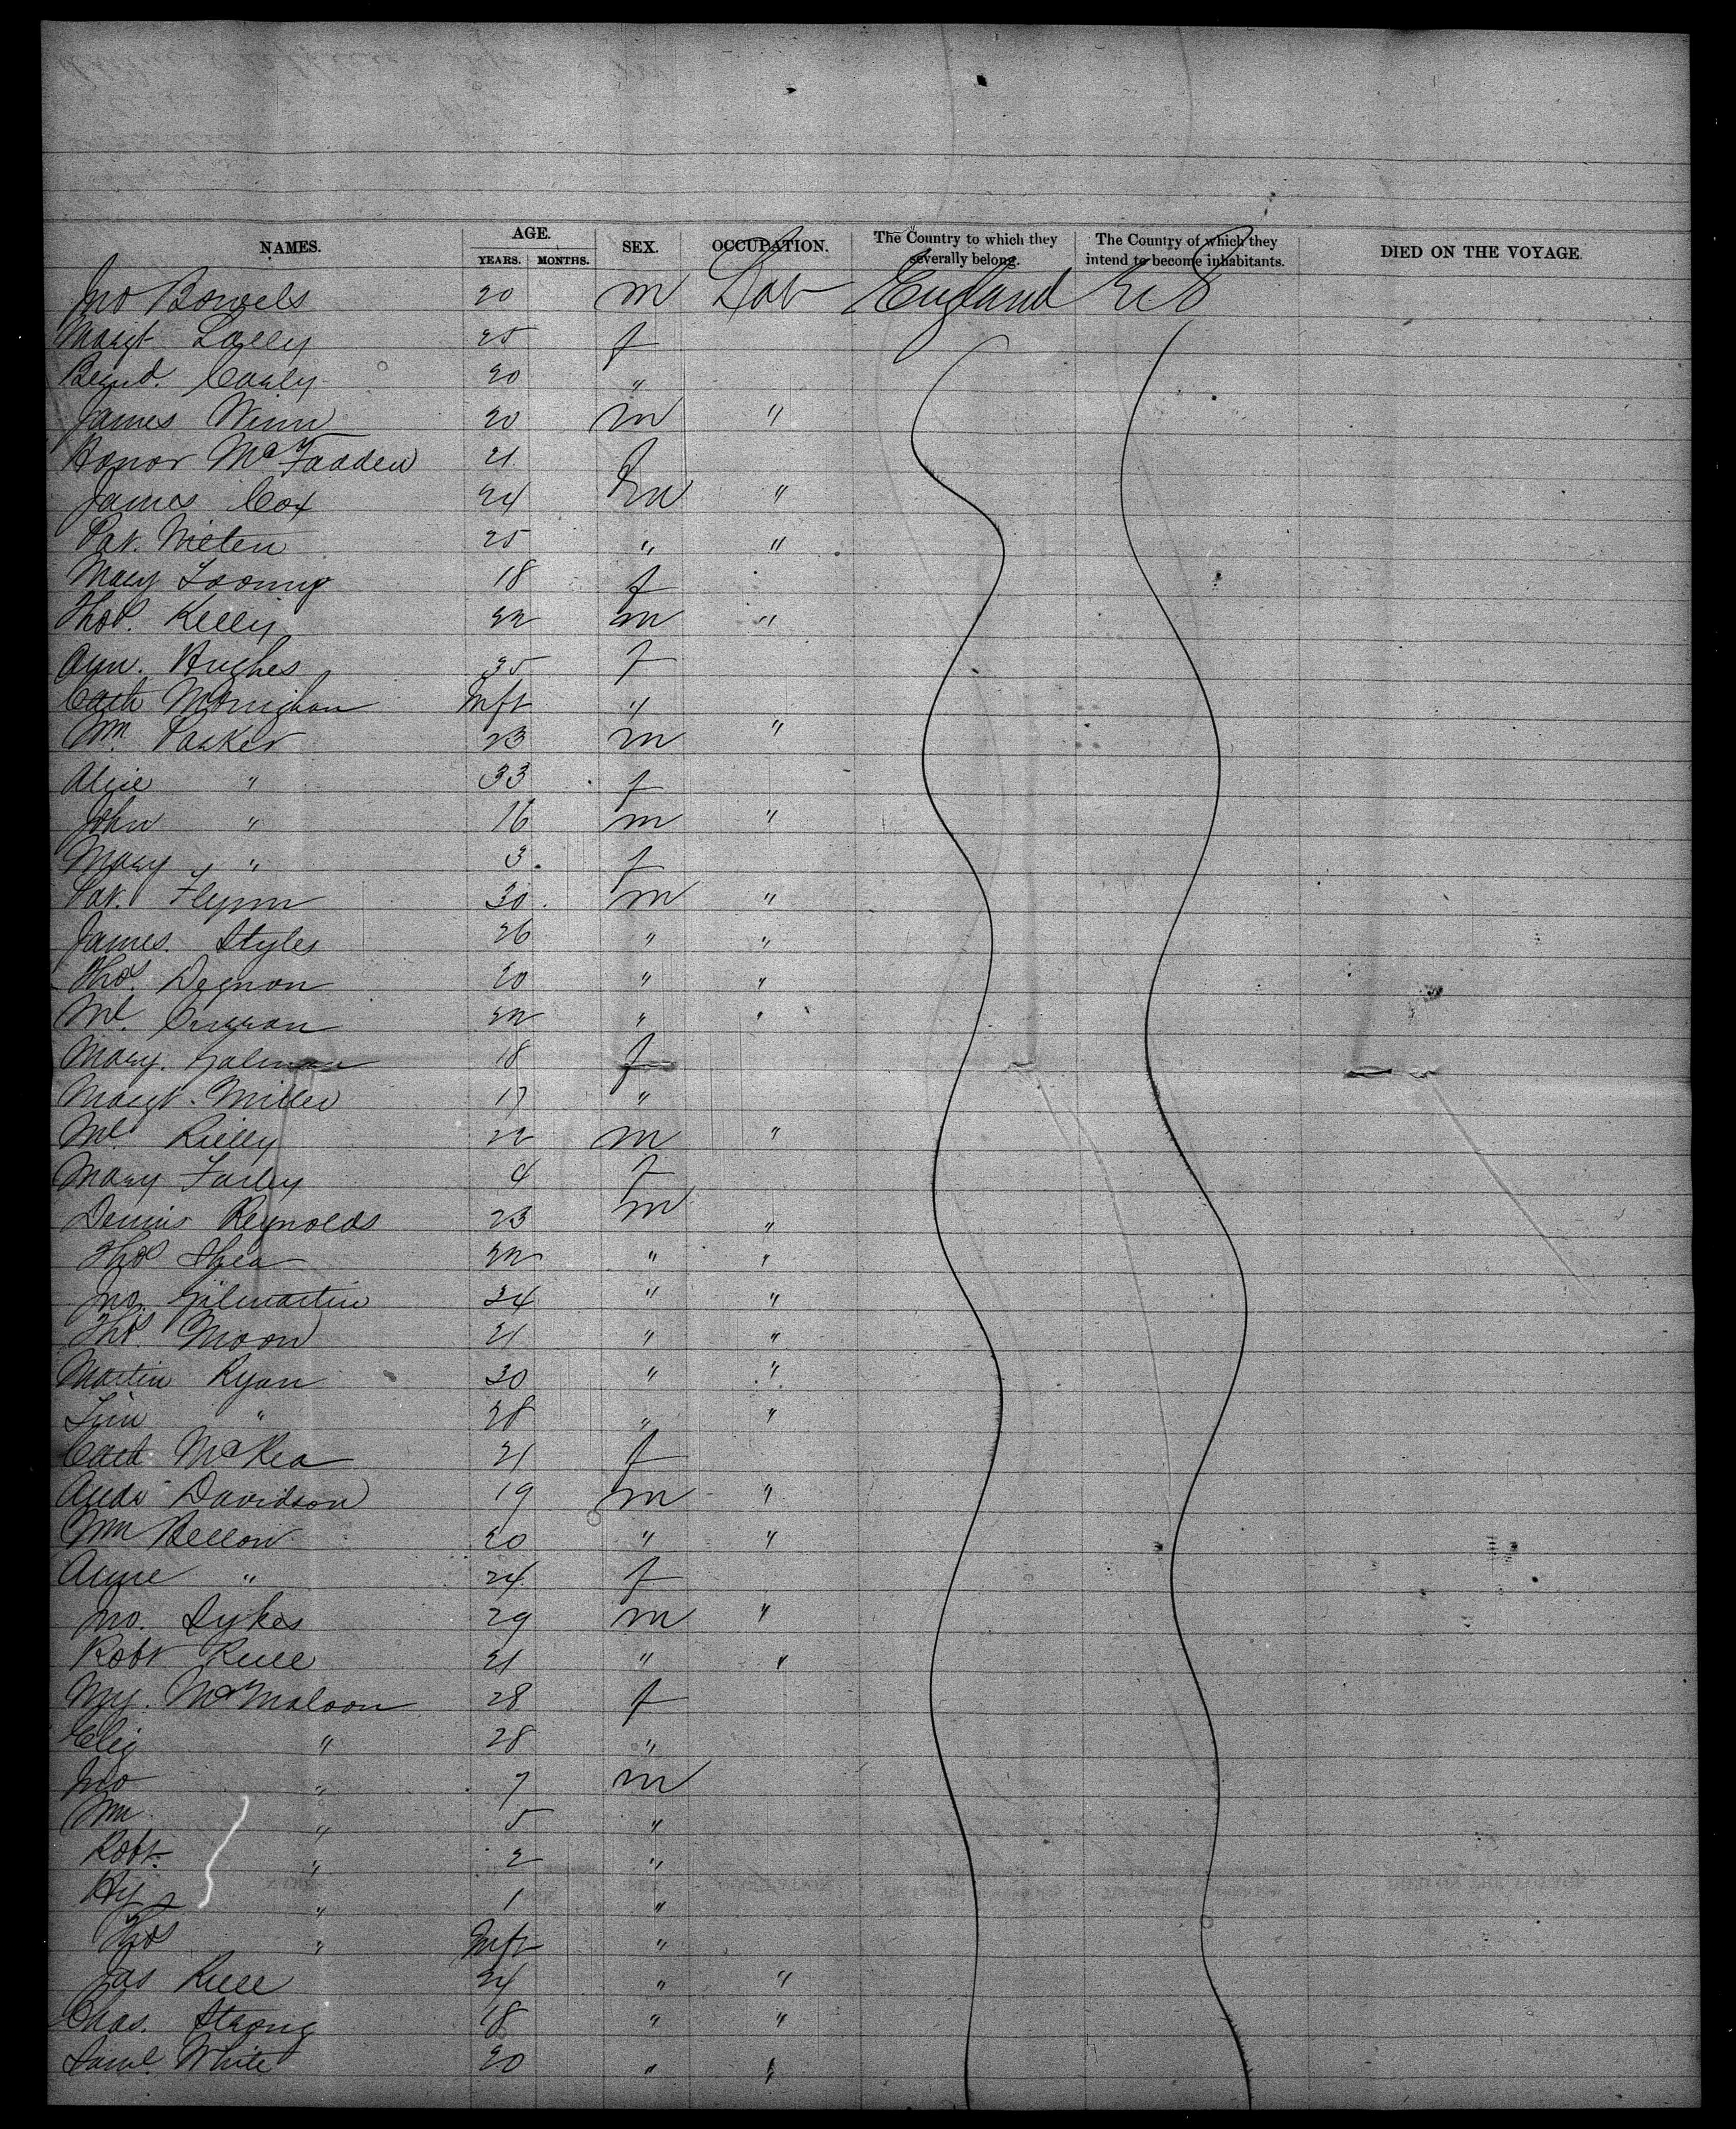 NAMES. AGE. SEX. OCCUPATION. The Country to which they severally belong. The Country of which they intend to become inhabitants. DIED ON THE VOYAGE.
YEARS. MONTHS.
Jno Bowels 20 m Lab England U S
Margt Lally 25 f
Bernd. Carly 20 "
James Winn 20 m "
Honor McFadden 21 f
James Cox 24 m "
Pat. 25 " "
Mary 18 f
Thos. Kelly 22 m "
Ann. Hughes 35 f
Cath Monighan Inft "
Wm. Parker 23 m "
Alice " 33 f
John " 16 m "
Mary " 3 f
Pat. Flynn 30 m "
James. Styles 26 " "
Thos. Degnon 20 " "
Ml. Curran 22 " "
Mary. Galman 18 f
Margt. Miller 17 "
Ml Rielly 22 m "
Mary Farley 4 f
Dennis Reynolds 23 m "
Thos Shea 22 " "
Jno. Gilmartin 34 " "
Thos Moon 21 " "
Martin Ryan 30 " "
Tim " 28 " "
Cath McKea 21 f
Andw Davidson 19 m "
Wm Bellow 20 " "
Anne " 24 f
Jno. Sykes 29 m "
Robt 21 " "
My. McMaloon 28 f
Eliz " 28 "
Jno " 7 m
Wm. " 5 "
Robt. " 2 "
Hy " 1 "
Thos " Inft "
Jas 24 " "
Chas. Strong 18 " "
Saml White 20 " "